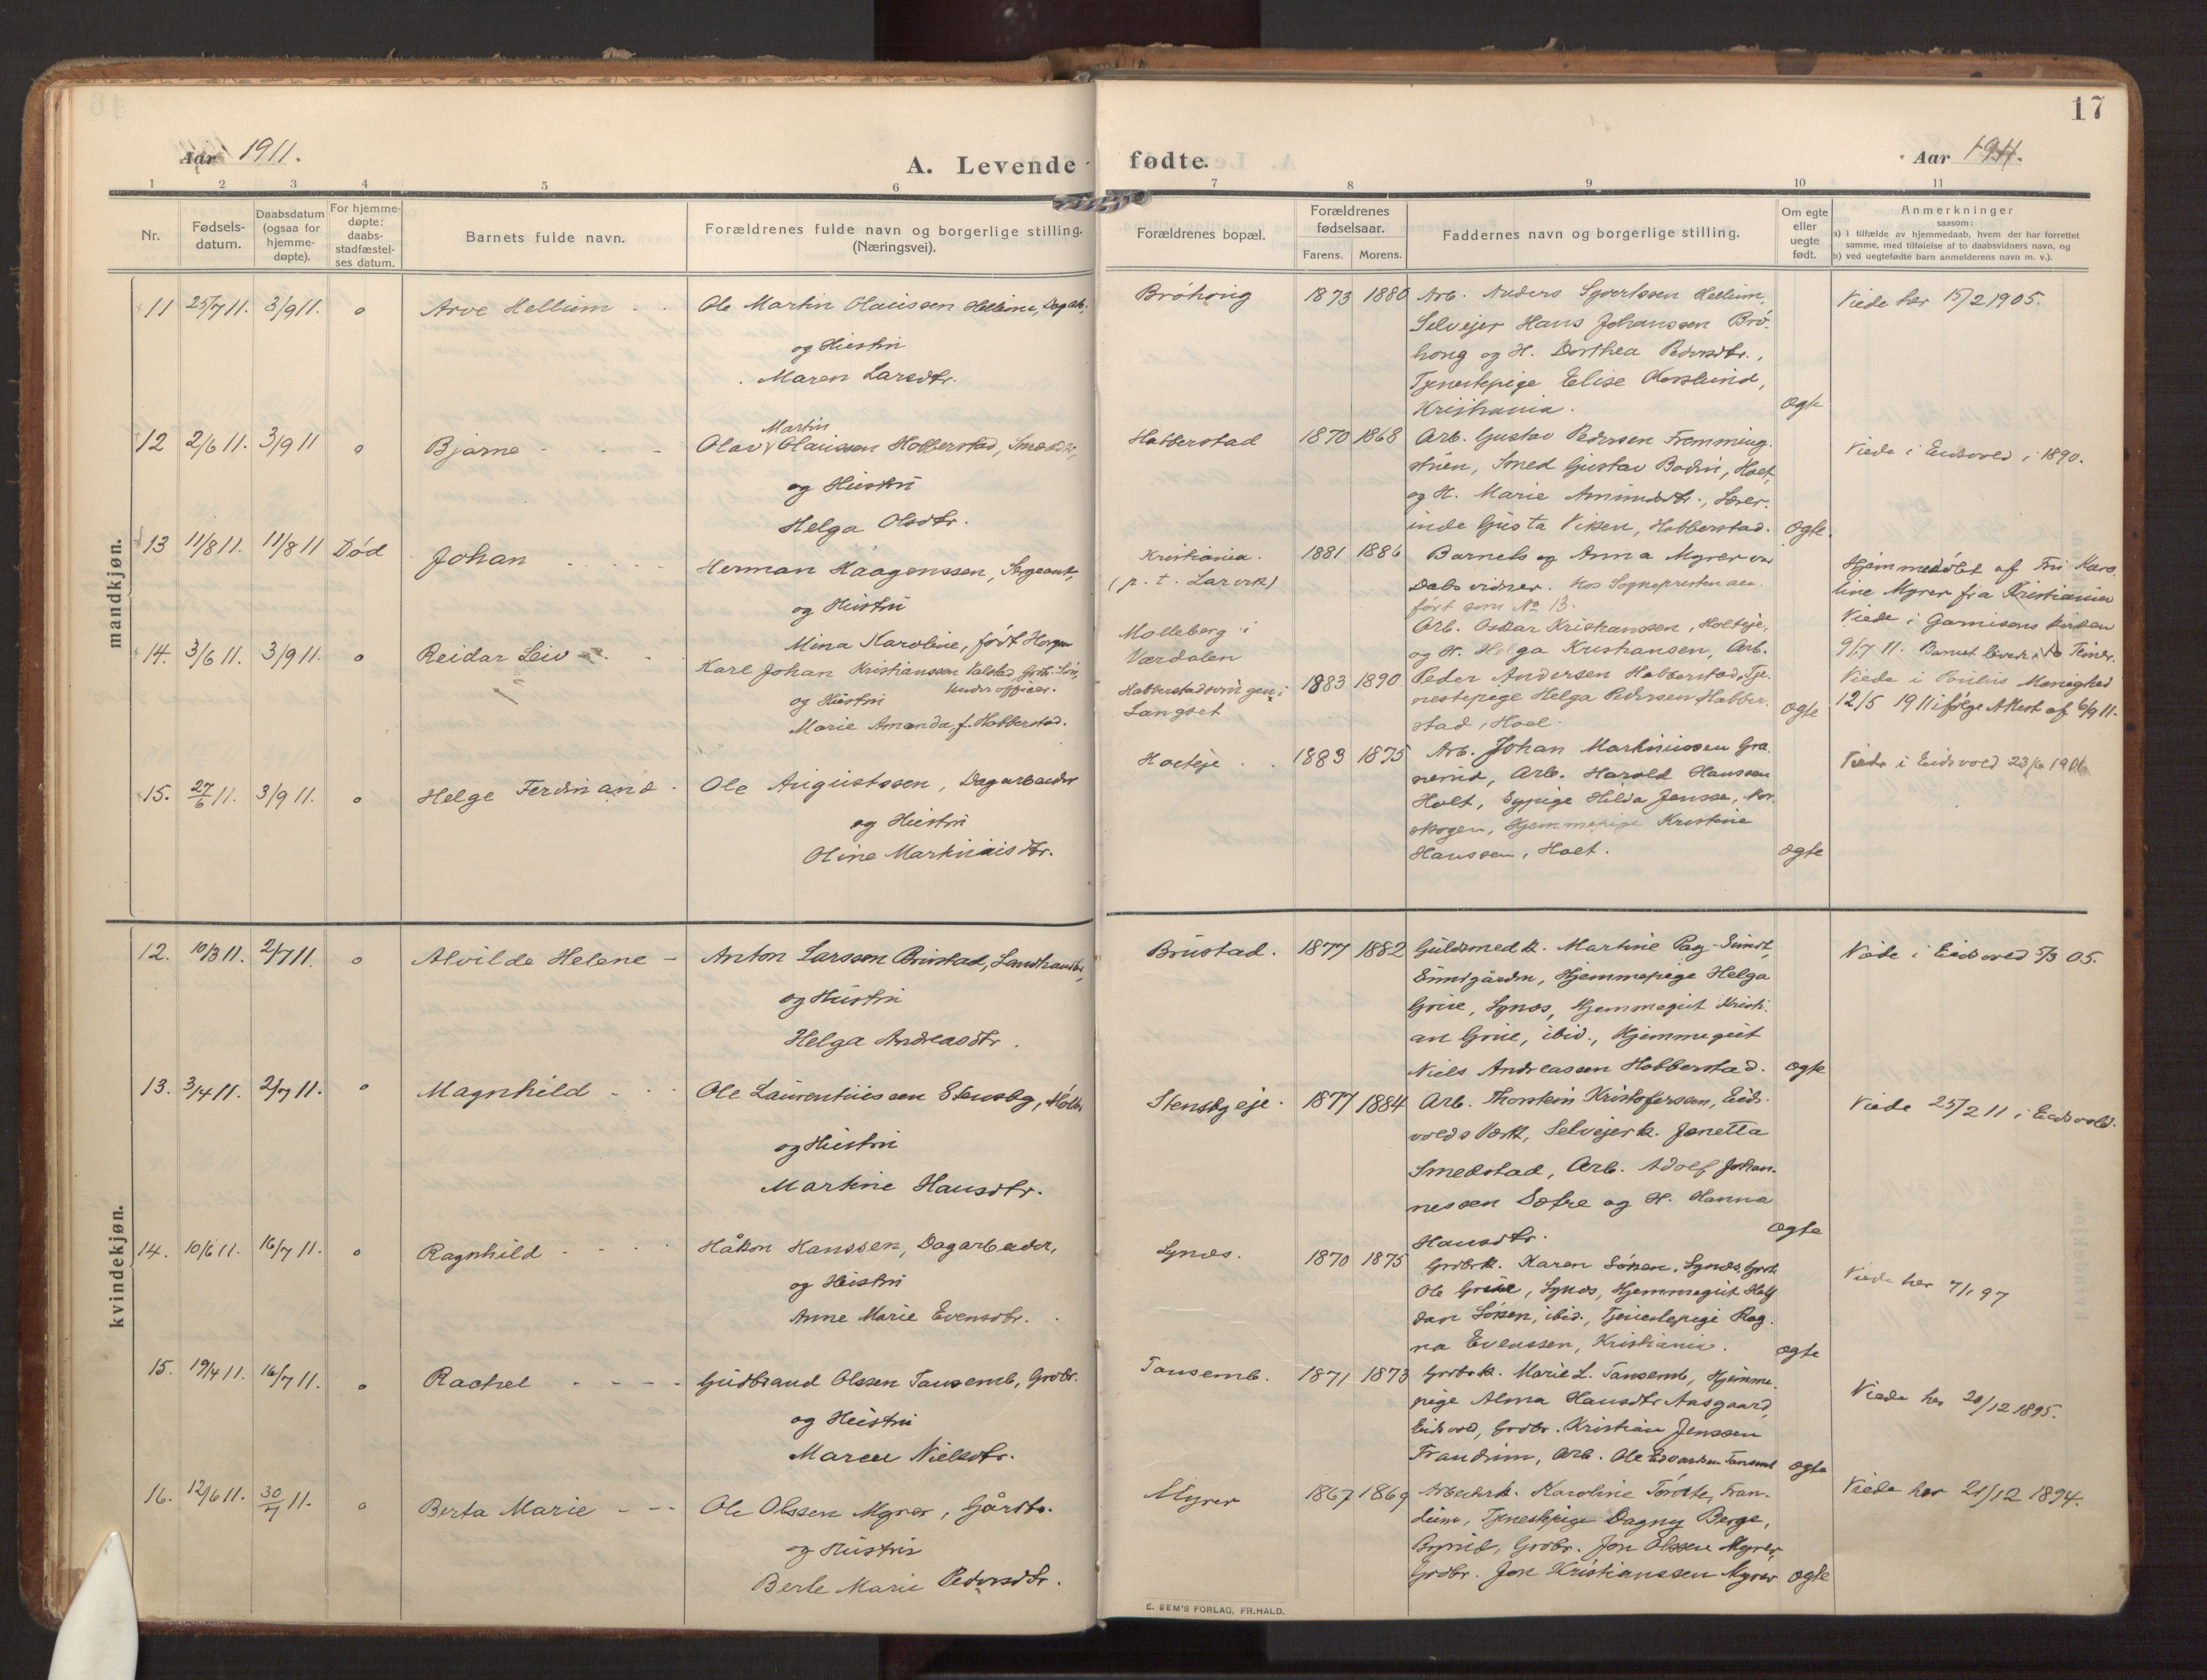 17
Aar 1911.
A. Levende
fødte.
Aar 1911.
1 2 3 4 5 6 7 8 9 10 11
Nr.
Fødsels-
datum.
Daabsdatum
(ogsaa for
hjemme-
døpte).
For hjemme-
døpte:
daabs-
stadfæstel-
ses datum.
Barnets fulde navn.
Forældrenes fulde navn og borgerlige stilling.
(Næringsvei).
Forældrenes bopæl.
Forældrenes
fødselsaar.
Farens. Morens.
Faddernes navn og borgerlige stilling.
Om egte
eller
uegte
født.
Anmerkninger
saasom:
a) i tilfælde av hjemmedaab, hvem der har forrettet
samme, med tilføielse af to daabsvidners navn, og
b) ved uegtefødte barn anmelderens navn m. v.).
mandkjøn.
11 25/7 11. 3/9 11. o Arve Hellum
Ole Martin Olaussen Hellum, Dagarb.,
og Hustru
Maren Larsdtr.
Brøhong 1873 1880
Arb. Anders Syvertssen Hellum,
Selvejer Hans Johanssen Brø-
hong og H. Dorthea Pedersdtr.,
Tjenestepige Elise
Kristiania.
Ogte
Viede her 15/2 1905.
12 2/6 11. 3/9 11 o Bjarne
Martin
Olav Olaussen Habberstad,
og Hustru
Helga Olsdtr.
Habberstad 1870 1868
Arb. Gustav Pedersen Fremming-
stuen, Smed Gustav Bodin, Hoel,
og H. Marie Amundsdtr., Lærer-
inde Gusta Viken, Habberstad.
Ogte.
Viede i Eidsvold i 1890.
13 11/8 11. 11/8 11 Død Johan
Herman Haagenssen, Sergeant,
og Hustru
Mina Karoline, født
Kristiania.
(p. t. Larvik)
1881 1886
Barnets og Anna Myrer var
Dabsvidner. hos Sognepresten an-
ført som No 13.
Hjemmedøbt af Fru Karo-
line Myrer fra Kristiania
Viede i Garnisons kirken
9/7 11. Barnet levede i Timer.
14. 3/6 11. 3/9 11. o Reidar Leiv
Karl Johan Kristianssen Valstad,
Underofficer.
og Hustru
Marie Amanda f. Habberstad.
Molleberg i
Værdalen
i
Langset
1883 1890
Arb. Oskar Kristianssen, Holteje,
og H. Helga Kristiansen, Arb.
Peder Andersen Habberstad, Tje-
nestepige Helga Pedersen Habber-
stad, Hoel.
Ogte
Viede i Paulus Menighed
12/5 1911 ifølge Attest af 6/9 11.
15. 27/6 11. 3/9 11. o Helge Ferdinand
Ole Augustssen, Dagarbeider
og Hustru
Oline Martinusdtr.
Holteje 1883 1875
Arb. Johan Martinussen Gra-
nerud, Arb. Harald Hanssen
Holt, Sypige Hilda Jensen, Nor-
skogen, Hjemmepige Kristine
Hanssen, Holt.
Ogte
Viede i Eidsvold 23/6 1906
kvindekjøn.
12. 10/3 11. 2/7 11. o Alvilde Helene
Anton Larssen Brustad, Landhandler,
og Hustru
Helga Andreasdtr.
Brustad. 1877 1882
Guldsmedk. Martine Pay-Sundt,
Sundgården, Hjemmepige Helga
Grue, Lynæs, Hjemmegut Kristi-
an Grue, ibid., Hjemmegut
Niels Andreassen Habberstad.
Ogte
Viede i Eidsvold 5/3 05.
13. 3/4 11. 2/7 11. o Magnhild
Ole Laurentiussen Stensby,
og Hustru
Martine Hansdtr.
Stensbyeje. 1877 1884
Arb. Thorstein Kristofersen, Eids-
volds Værk, Selvejerk. Janetta
Smedstad, Arb. Adolf Johan-
nessen Sætre og H. Hanna
Hansdtr.
Ogte
Viede 25/2 11 i Eidsvold.
14. 10/6 11. 16/7 11. o Ragnhild
Håkon Hanssen, Dagarbeider,
og Hustru
Anne Marie Evensdtr.
Lynæs. 1870 1875
Grdbrk. Karen Lønen, Lynæs, Grdb.
Ole Grue, Lynæs, Hjemmegut Half-
dan ibid., Tjenestepige Rag-
na Evenssen, Kristiania.
Ogte
Viede her 7/1 97
15. 19/4 11. 16/7 11. o Rachel
Gudbrand Olssen Tausemb, Grdbr.
og Hustru
Maren Nielsdtr.
Tansemb. 1871 1873
Grdbrk. Marie L. Tansemb, Hjemme-
pige Alma Hansdtr. Aasgaard,
Eidsvold, Grdbr. Kristian Jenssen
Frandrim, Arb. Ole Edvardsen Tansemb
Ogte
Viede her 20/12 1895.
16. 12/6 11. 30/7 11. o Berta Marie
Ole Olssen Myrer, Gårdbr.
og Hustru
Berte Marie Pedersdtr.
Myrer 1867 1869
Arbeiderk. Karoline Tørdte, Fran-
drim, Tjenestepige Dagny Berge,
Byrud, Grdbr. Jon Olssen Myrer,
Grdbr. Jon Kristianssen Myrer
Ogte
Viede her 21/12 1894.
E. SEM'S FORLAG, FR.HALD.